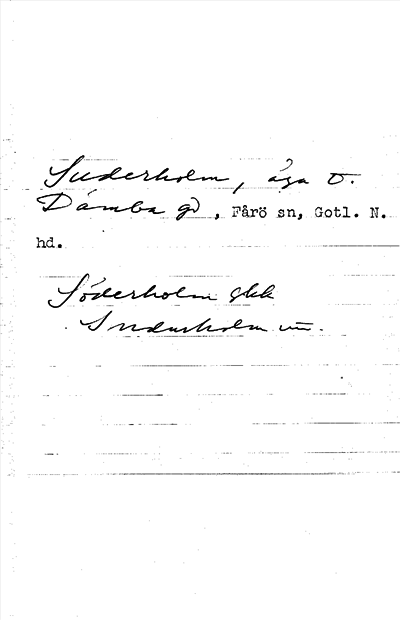 Suderholm, äga t.
Dämba gd, Fårö sn, Gotl. N.
hd.
Söderholm gkk
Suderholm un.